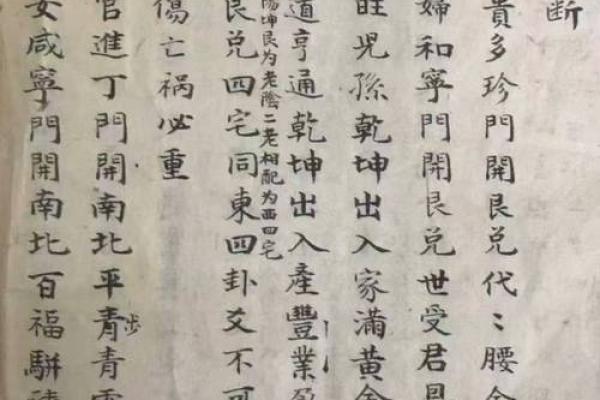 断
貴多珍門開艮兑代〻腰金
婦和寧門開艮兑世受君恩
旺児孫乾坤出入家滿黄金
道亨通乾坤出入產豐業盈
陽坤艮为老陰二老相配为西四宅
艮兑四宅同東四卦爻不可
傷亡禍必重
官進丁門開南北平步青雲
女咸寧門開南北百福駢臻